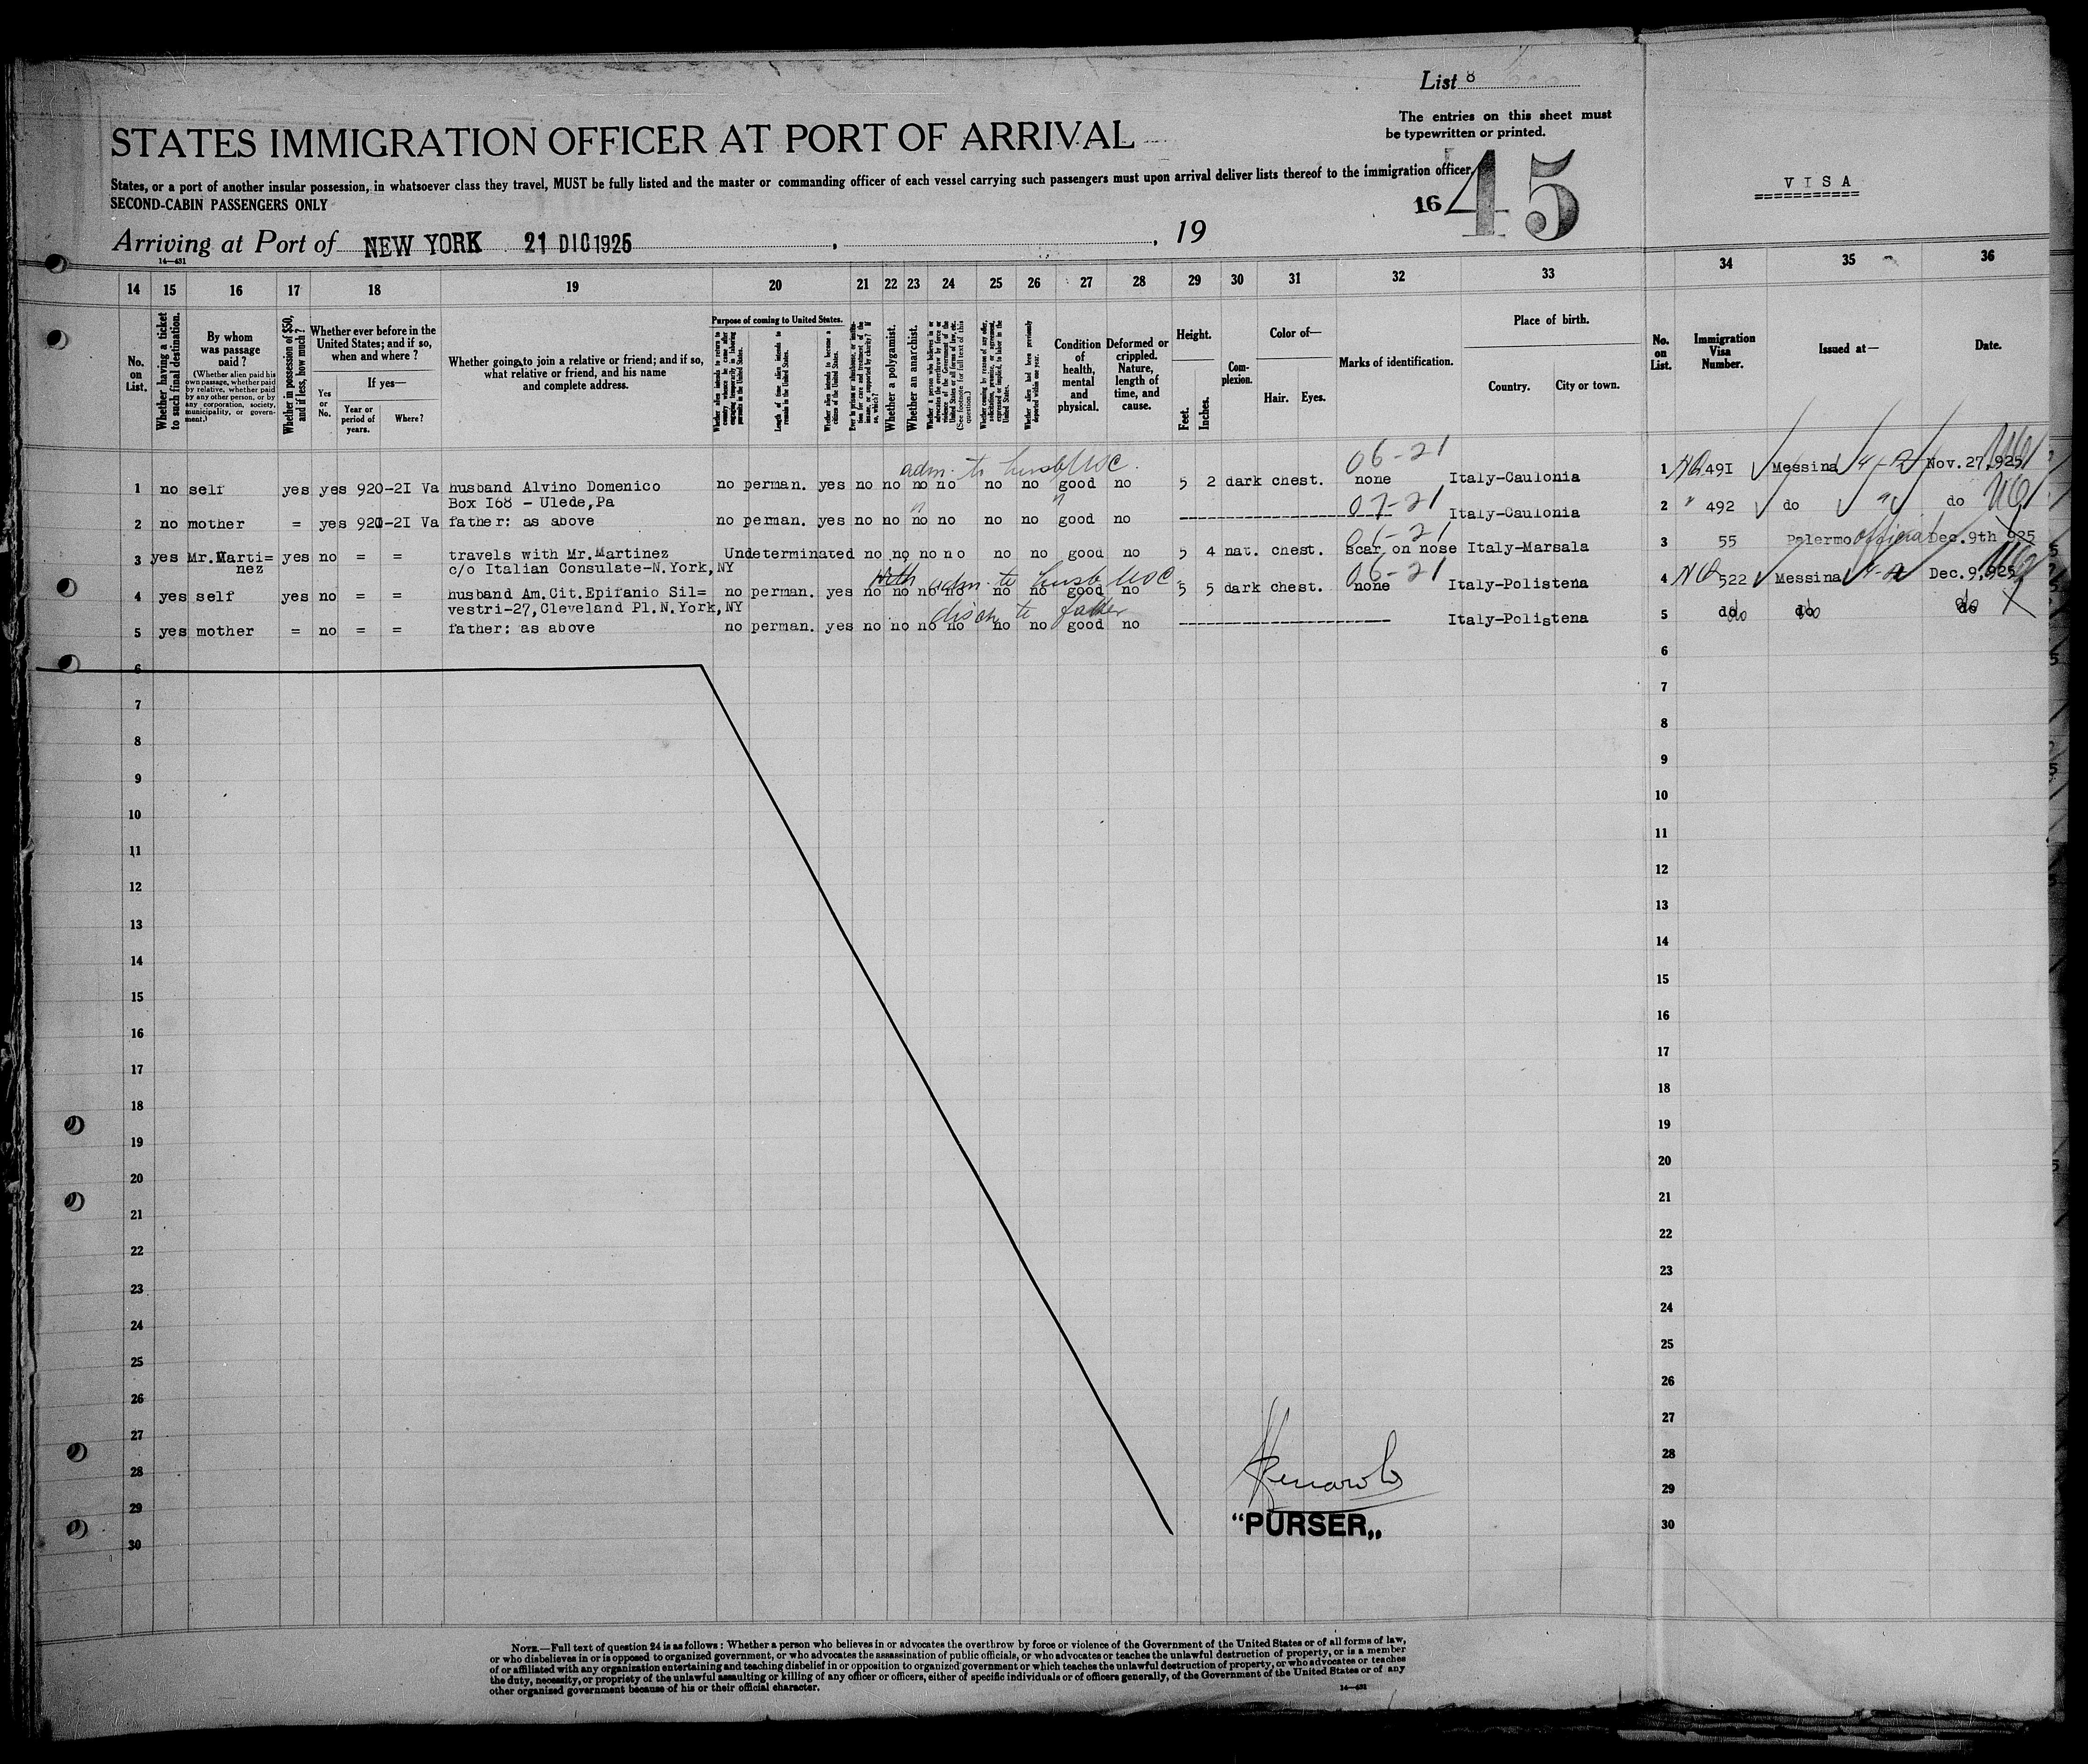 List 8
The entries on this sheet must
be typewritten or printed.
STATES IMMIGRATION OFFICER AT PORT OF ARRIVAL
States, or a port of another insular possession, in whatsoever class they travel, MUST be fully listed and the master or commanding officer of each vessel carrying such passengers must upon arrival deliver lists thereof to the immigration officer
SECOND-CABIN PASSENGERS ONLY
16 45
VISA
Arriving at Port of NEW YORK 21 DIC 1925 , 19
14—431
14 15 16 17 18 19 20 21 22 23 24 25 26 27 28 29 30 31 32 33 34 35 36
No. on List.
Whether having a ticket to such final destination.
By whom was passage paid?
(Whether alien paid his own passage, whether paid by relative, whether paid by any other person, or by any corporation, society, municipality, or government.)
Whether in possession of $50, and if less, how much?
Whether ever before in the United States; and if so, when and where?
Yes or No.
If yes—
Year or period of years.
Where?
Whether going to join a relative or friend; and if so, what relative or friend, and his name and complete address.
Purpose of coming to United States.
Length of time alien intends to remain in the United States.
Whether alien intends to become a citizen of the United States.
Whether a polygamist.
Whether an anarchist.
Condition of health, mental and physical.
Deformed or crippled. Nature, length of time, and cause.
Height.
Feet.
Inches.
Complexion.
Color of—
Hair. Eyes.
Marks of identification.
Place of birth.
Country. City or town.
No. on List.
Immigration Visa Number.
Issued at—
Date.
adm. to husb USC. 06-21
1 no self yes yes 920-2I Va husband Alvino Domenico no perman. yes no no no no no no good no 5 2 dark chest. none Italy-Caulonia 1 NQ 49I Messina 4-2 Nov.27,925
Box I68 - Ulede,Pa
07-21
2 no mother = yes 920-2I Va father: as above no perman. yes no no no no no no good no Italy-Caulonia 2 " 492 do " do
06-21
3 yes Mr.Marti= yes no = = travels with Mr.Martinez Undeterminated no no no no no no good no 5 4 nat. chest. scar on nose Italy-Marsala 3 55 Palermo official Dec.9th 925
nez c/o Italian Consulate-N.York,NY
adm. to husb USC 06-21
4 yes self yes no = = husband Am.Cit.Epifanio Sil= no perman. yes no no no no no no good no 5 5 dark chest. none Italy-Polistena 4 NQ 522 Messina 4-2 Dec.9,925
vestri-27,Cleveland Pl.N.York,NY
disch to father
5 yes mother = no = = father: as above no perman. yes no no no no no no good no Italy-Polistena 5 do do do
6 6
7 7
8 8
9 9
10 10
11 11
12 12
13 13
14 14
15 15
16 16
17 17
18 18
19 19
20 20
21 21
22 22
23 23
24 24
25 25
26 26
27 27
28 28
29 29
30 30
“PURSER„
NOTE.—Full text of question 24 is as follows: Whether a person who believes in or advocates the overthrow by force or violence of the Government of the United States or of all forms of law,
or who disbelieves in or is opposed to organized government, or who advocates the assassination of public officials, or who advocates or teaches the unlawful destruction of property, or is a member
of or affiliated with any organization entertaining and teaching disbelief in or opposition to organized government or which teaches the unlawful destruction of property, or who advocates or teaches
the duty, necessity, or propriety of the unlawful assaulting or killing of any officer or officers, either of specific individuals or of officers generally, of the Government of the United States or of any
other organized government because of his or their official character.
14—431